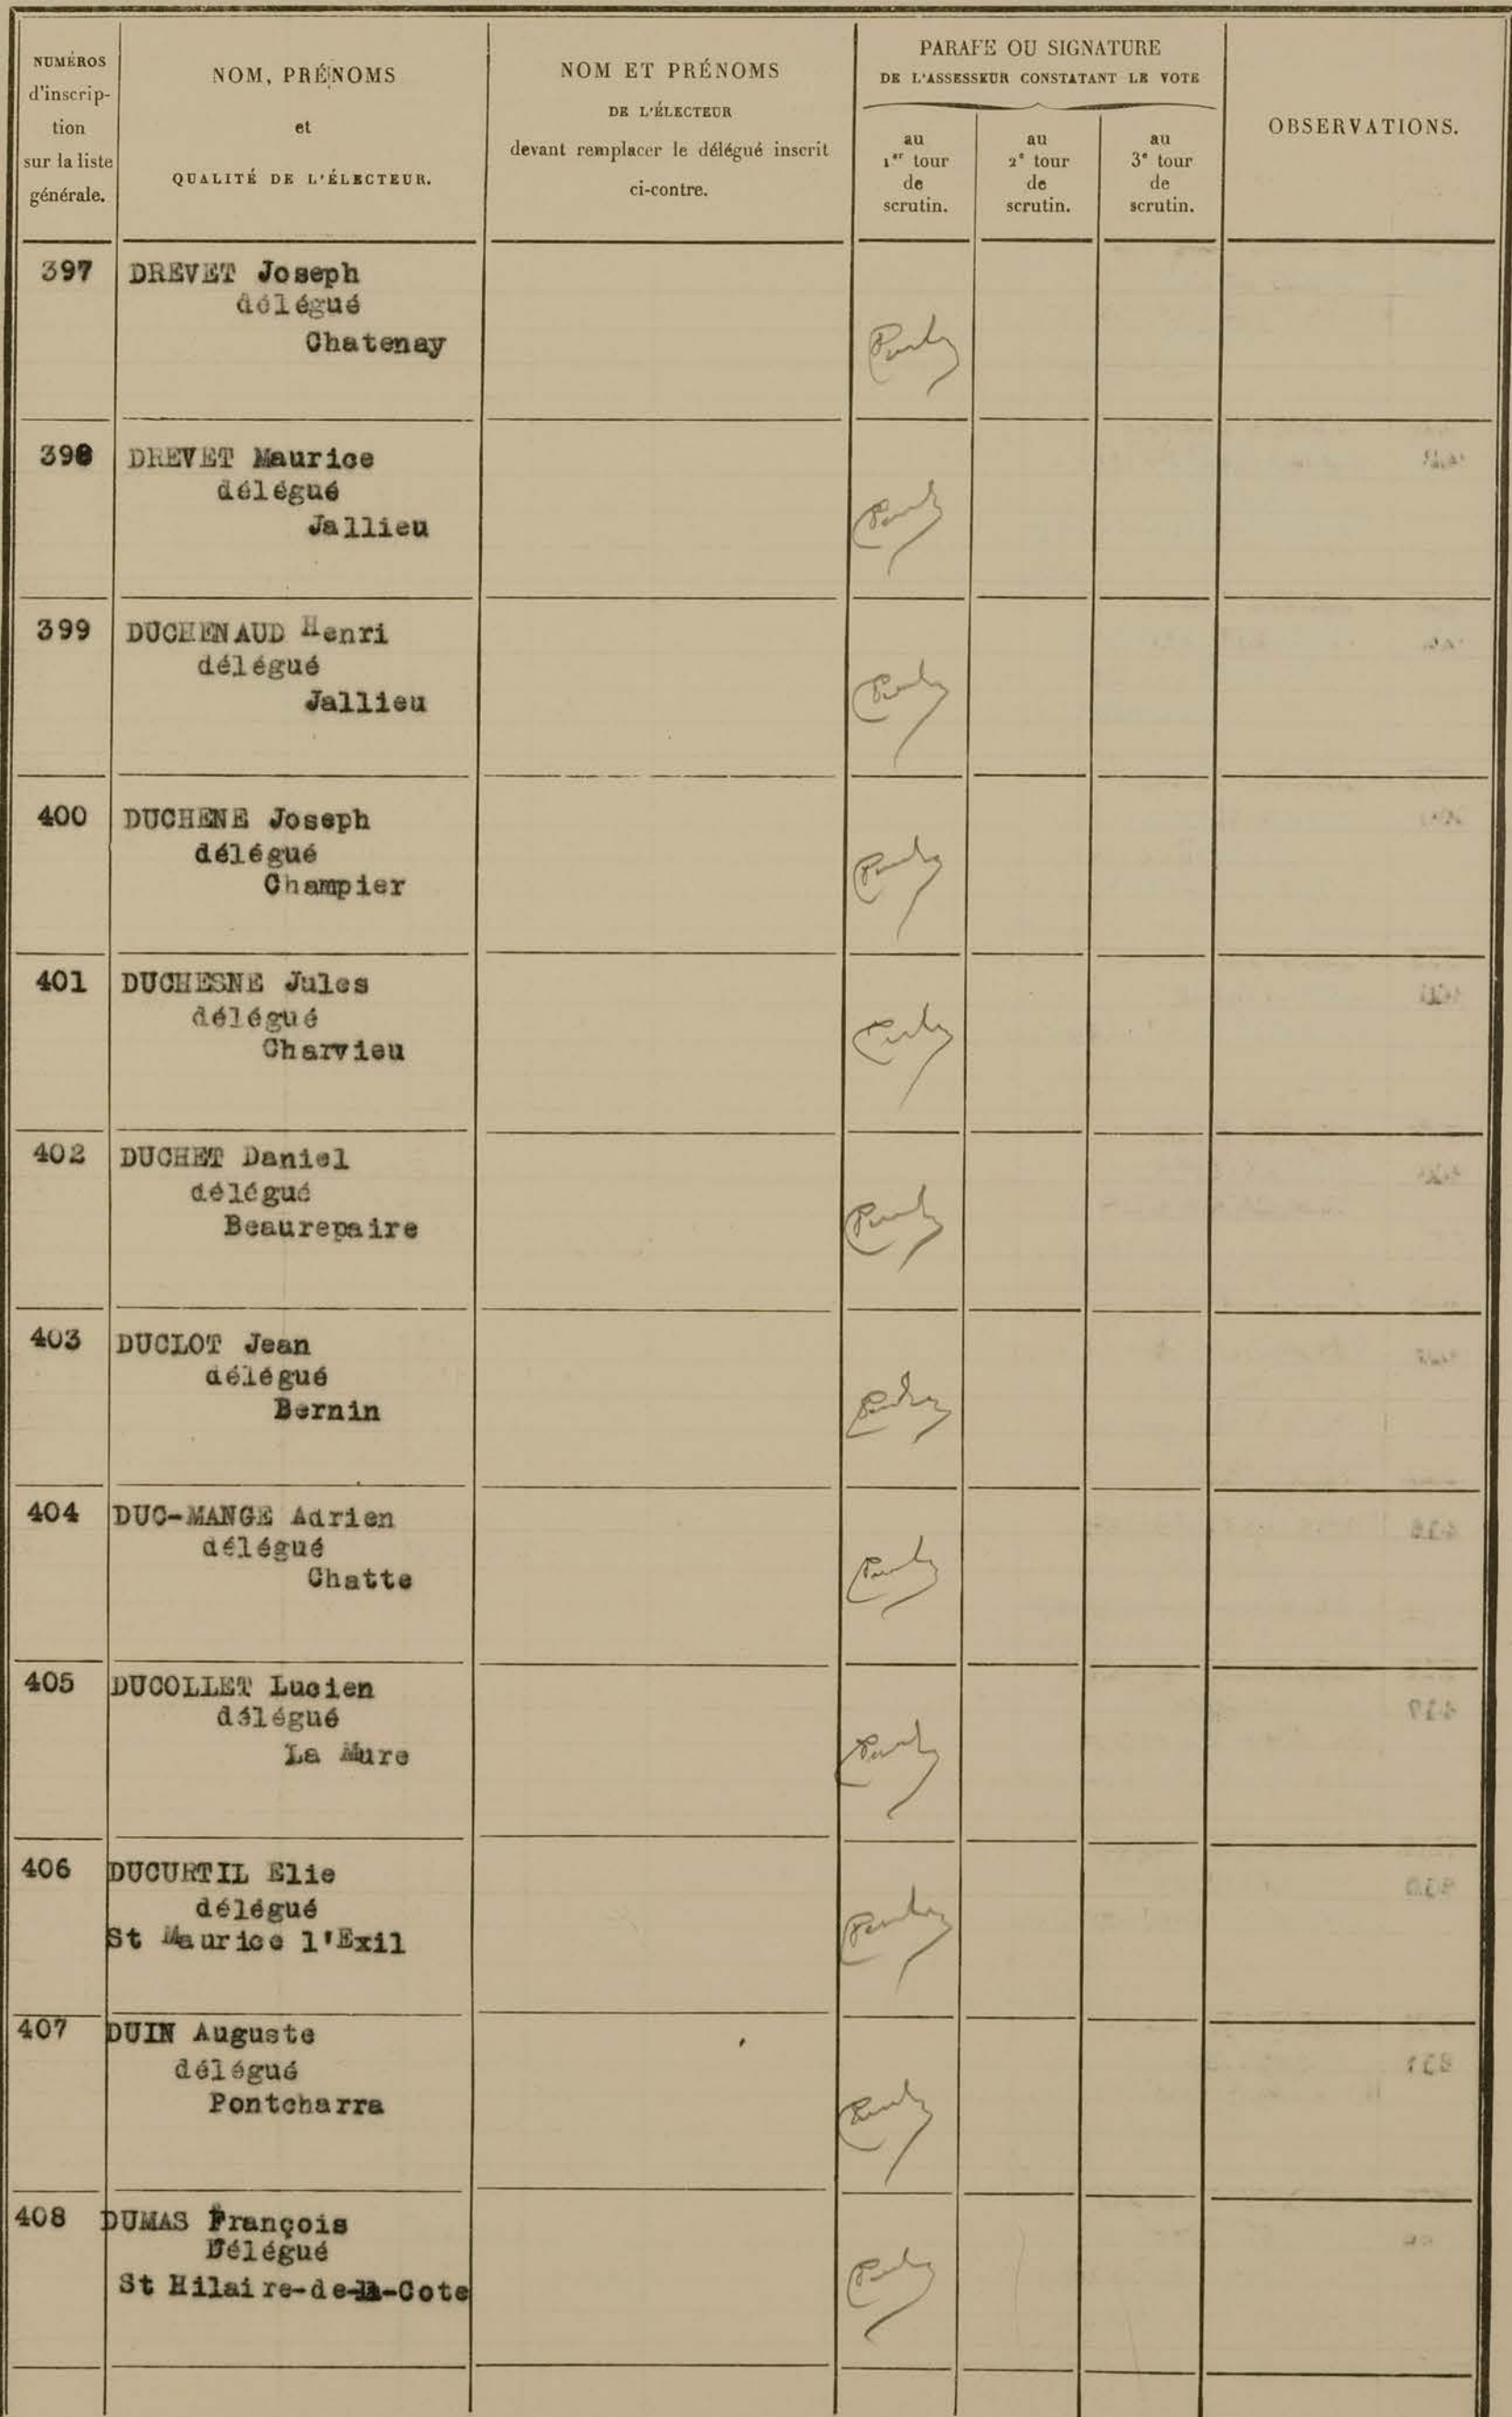 NUMÉROS
d'inscrip-
tion
sur la liste
générale.
NOM, PRÉNOMS
et
QUALITÉ DE L'ÉLECTEUR.
NOM ET PRÉNOMS
DE L'ÉLECTEUR
devant remplacer le délégué inscrit
ci-contre.
PARAFE OU SIGNATURE
DE L'ASSESSEUR CONSTATANT LE VOTE
au
1er tour
de
scrutin.
au
2e tour
de
scrutin.
au
3e tour
de
scrutin.
OBSERVATIONS.
397 DREVET Joseph
délégué
Chatenay
398 DREVET Maurice
délégué
Jallieu
399 DUCHENAUD Henri
délégué
Jallieu
400 DUCHENE Joseph
délégué
Champier
401 DUCHESNE Jules
délégué
Charvieu
402 DUCHET Daniel
délégué
Beaurepaire
403 DUCLOT Jean
délégué
Bernin
404 DUC-MANGE Adrien
délégué
Chatte
405 DUCOLLET Lucien
délégué
La Mure
406 DUCURTIL Elie
délégué
St Maurice l'Exil
407 DUIN Auguste
délégué
Pontcharra
408 DUMAS François
Délégué
St Hilaire-de-la-Cote